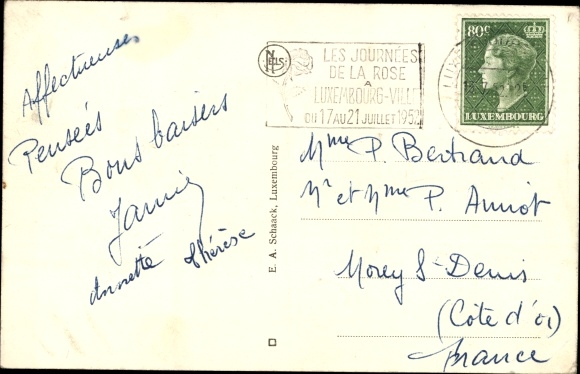 Affectueuses
Pensées
Bons baisers
Annette Thérèse
E. A. Schaack, Luxembourg
NELS
LES JOURNÉES
DE LA ROSE
A
LUXEMBOURG-VILLE
DU 17 AU 21 JUILLET 1952
80c
LUXEMBOURG
Mme P. Bertrand
Mr et Mme P. Amiot
Morey St-Denis
(Côte d'or)
France